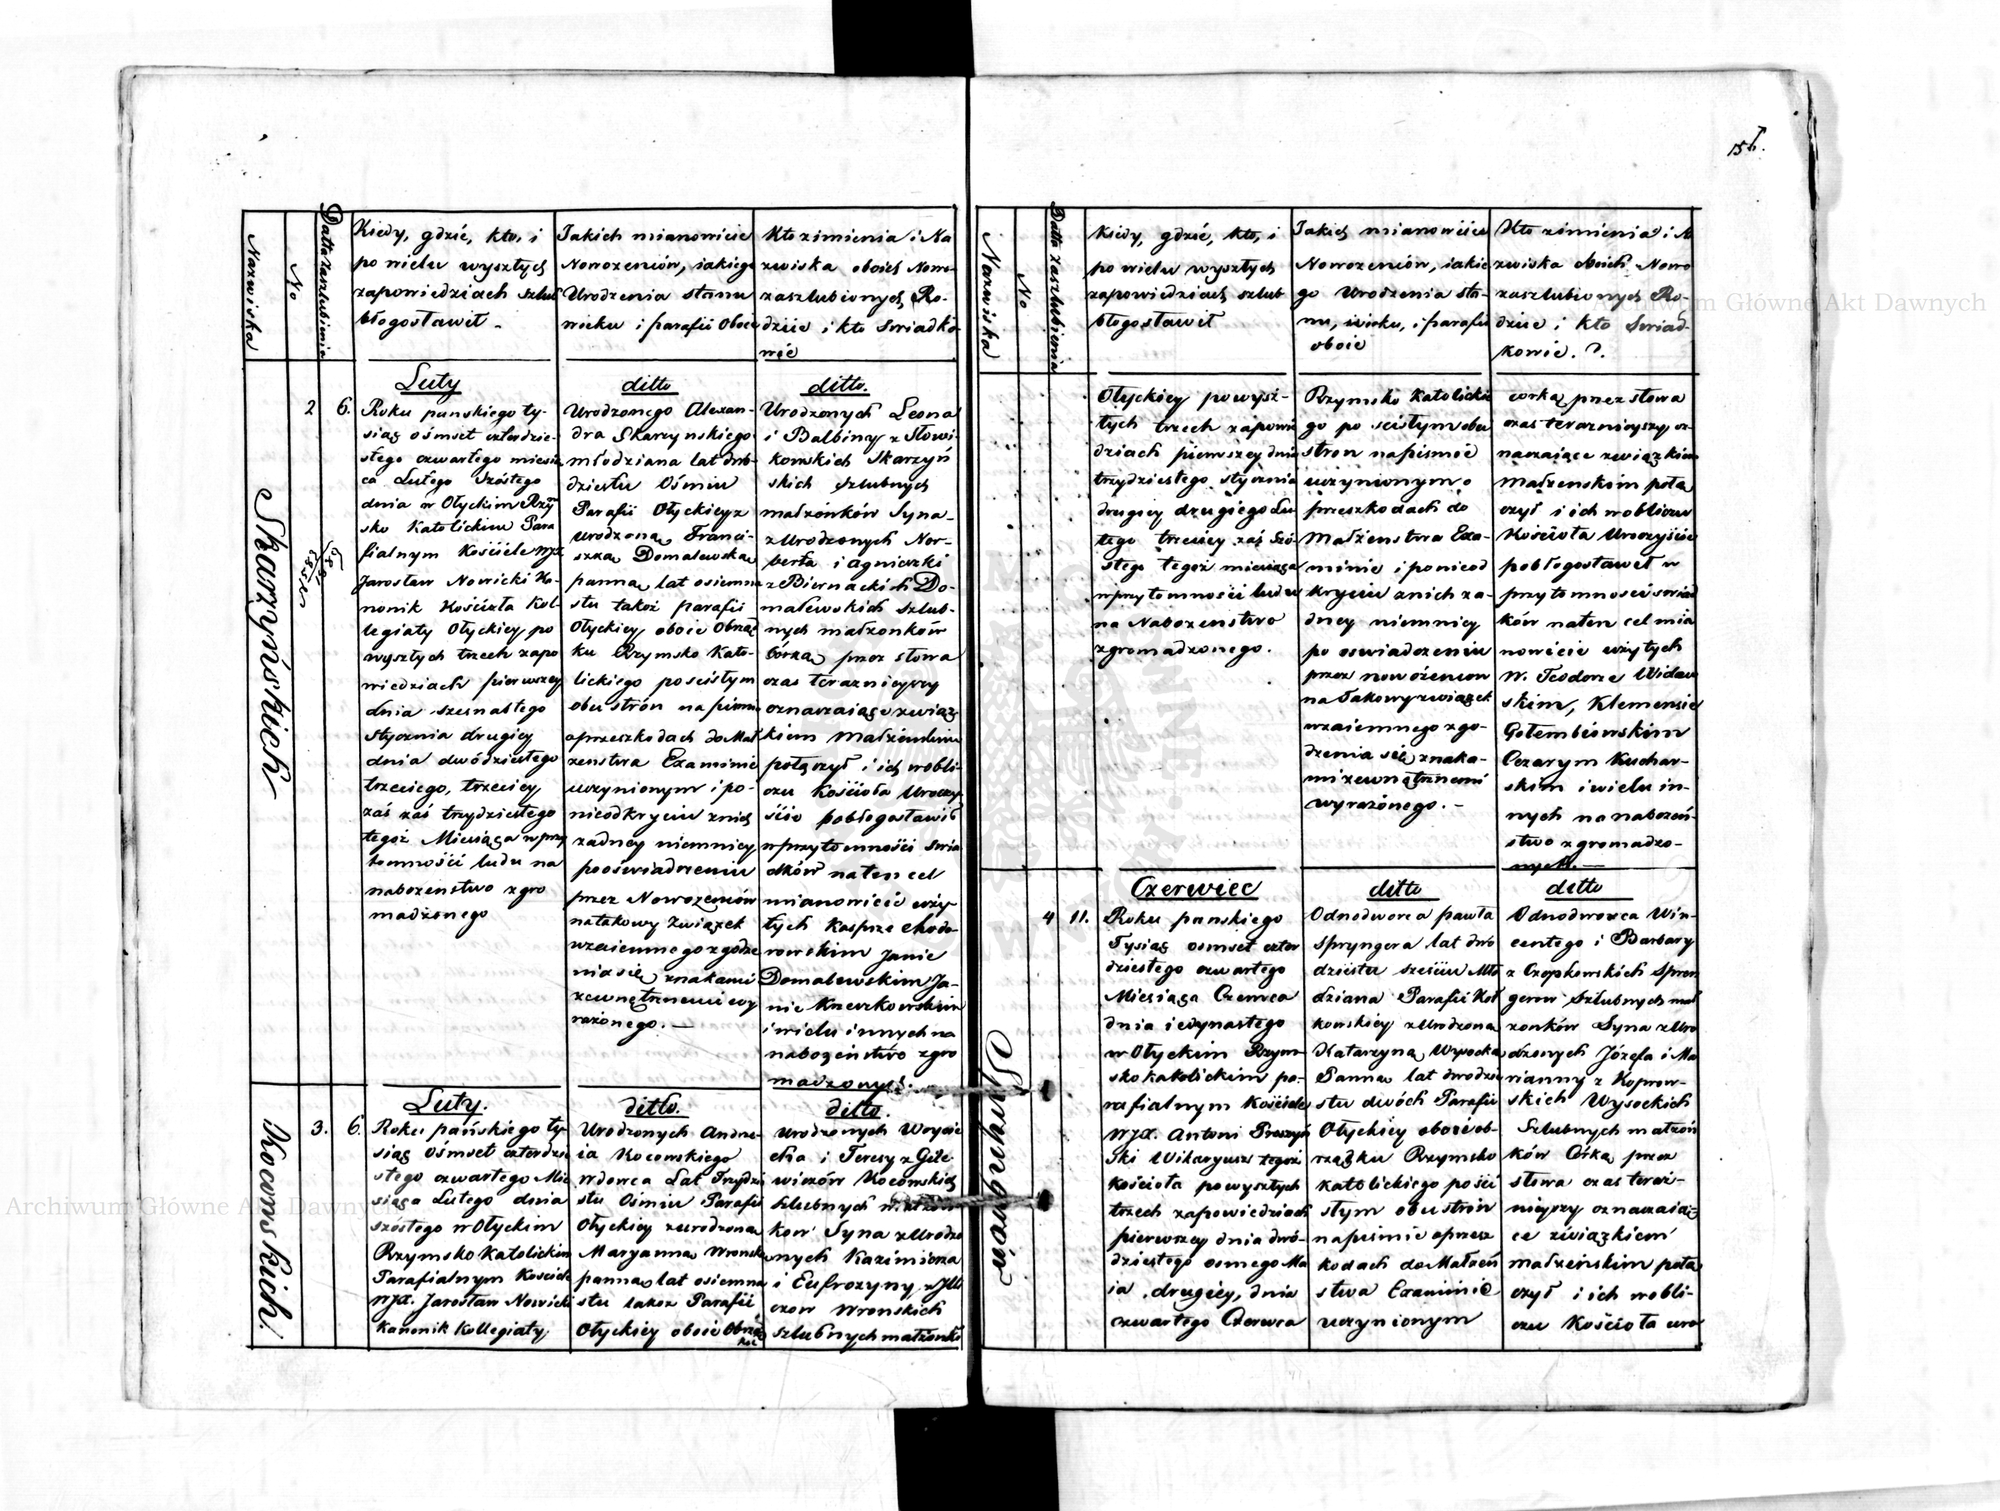 15
Nazwiska
No
Datta zaszlubienia
Kiedy, gdzie, kto, i
po wielu wyszłych
zapowiedziach szlub
błogosławił
Jakich mianowicie
Nowożeniów, iakiego
Urodzenia stanu
wieku i parafii Oboie
Kto z imienia i Na
zwiska oboich Nowo
zaszlubionych Ro-
dzice i kto Swiadko-
wie
Skarzyńskich
2
6.
Luty
Roku panskiego ty-
siąc ośmset czterdzie-
stego czwartego miesią
ca Lutego Szóstego
dnia w Ołyckim Rzy
sko Katolickim Para
fialnym Kościele WJX
Jarosław Nowicki Ka-
nonik Kościoła Kol-
legiaty Ołyckiey po
wyszłych trzech zapo
wiedziach pierwszey
dnia szesnastego
stycznia drugiey
dnia dwódziestego
trzeciego, trzeciey
zaś zaś trzydziestego
tegoż Miesiąca w przy
tomności ludu na
nabożenstwo zgro
madzonego
ditto
Urodzonego Alexan-
dra Skarzynskiego
młodziana lat dwó-
dziestu Ośmiu
Parafii Ołyckiey z
urodzoną Franci-
szką Domalewską
panną lat osiemna
stu takoż parafii
Ołyckiey oboie Obrząd
ku Rzymsko Kato-
lickiego po scisłym
obu strón na pismie
o przeszkodach do Mał
zenstwa Examinie
uczynionym i po-
nieodkryciu z nich
żadney niemniey
po oświadczeniu
przez Nowożeniów
na takowy związek
wzaiemnego zgodze
nia się znakami
zewnętrznemi wy
rażonego. —
ditto.
Urodzonych Leona
i Balbiny z Słowi-
kowskich Skarzyń
skich szlubnych
małżonków Syna-
z Urodzonych Nor-
berta i Agnieszki
z Biernackich Do-
malewskich szlub-
nych małżonków
Córką przez słowa
czas teraznieyszy
oznaczaiące związ
kiem małżenskim
połączył i ich w obli-
czu Kościoła Uroczy-
ście pobłogosławił
w przytomności świa
dków na ten cel
mianowicie uży-
tych Kasprze Chodo-
rowskim Janie
Domalewskim Ja-
nie Kreczkowskim
i wielu innych na
nabożeństwo zgro
madzonych.
Kocowskich.
3.
6.
Luty.
Roku pańskiego ty-
siąc Ośmset czterdzie
stego czwartego Mie
siąca Lutego dnia
szóstego w Ołyckim
Rzymsko Katolickim
Parafialnym Kościele
WJX. Jarosław Nowicki
Kanonik Kollegiaty
ditto.
Urodzonych Andrze-
ia Kocowskiego
wdowca Lat Trzydzie
stu Ośmiu Parafii
Ołyckiey z urodzoną
Maryanną Wronską
panną lat osiemna
stu takoż Parafii
Ołyckiey oboie Obrząd
ditto.
Urodzonych Woycie
cha i Teresy z Gile
wiczów Kocowskich
szlubnych małżon
ków Syna z Urodzo
nych Kazimierza
i Eufrozyny z
Wronskich
szlubnych małżonkó
Nazwiska
No
Datta zaszlubienia
Kiedy, gdzie, kto, i
po wielu wyszłych
zapowiedziach szlub
błogosławił
Jakich mianowicie
Nowożeniów, iakie
go Urodzenia sta-
nu, wieku, i parafii
oboie
Kto z imienia i Na
zwiska oboich Nowo
zaszlubionych Ro-
dzice i kto Swiad-
kowie.
Ołyckiey po wysz-
łych trzech zapowie
dziach pierwszey dnia
trzydziestego stycznia
drugiey drugiego Lu
tego trzeciey zaś Szó-
stego tegoż miesiąca
w przytomności ludu
na Nabożenstwo
zgromadzonego.
Rzymsko Katolickie
go po scisłym obu
stron na pismie
uczynionym o
przeszkodach do
Małżenstwa Exa-
minie i po nieod
kryciu z nich ża-
dney niemniey
po oswiadczeniu
przez nowożeniow
na takowy związek
wzaiemnego zgo-
dzenia się znaka-
mi zewnętrznemi
wyrażonego. —
corką przez słowa
czas teraznieyszy oz-
naczaiące związkiem
Małżenskim połą
czył i ich w obliczu
Kościoła Uroczyście
pobłogosławił w
przytomności świad
ków na ten cel mia
nowicie użytych
W. Teodorze Widaw
skim, Klemensie
Gołembiowskim
Cezarym Kuchar-
skim i wielu in-
nych na nabożeń-
stwo zgromadzo-
nych. —
Spryngerów
4
11.
Czerwiec
Roku panskiego
Tysiąc osmset czter
dziestego czwartego
Miesiąca Czerwca
dnia iedynastego
w Ołyckim Rzym-
sko katolickim pa-
rafialnym Kościele
WJX. Antoni Pruszyń
ski Wikaryusz tegoż
Kościoła po wyszłych
trzech zapowiedziach
pierwszey dnia dwó-
dziestego osmego Ma
ia, drugiey, dnia
czwartego Czerwca
ditto
Odnodworca pawła
Spryngera lat dwó
dziestu sześciu Mło
dziana Parafii Koł
kowskiey z Urodzoną
Katarzyną Wysocką
Panną lat dwodzie
stu dwóch Parafii
Ołyckiey oboie ob-
rządku Rzymsko
katolickiego po ści
słym obu strón
na pismie o przesz
kodach do Małżeń
stwa Examinie
uczynionym
ditto
Odnodworca Win-
centego i Barbary
z Czopkowskich Spren
gerow Szlubnych mał
żonków Syna z Uro
dzonych Józefa i Ma
rianny z Koprow-
skich Wysockich
Szlubnych małżon
ków Córką przez
słowa czas teraź-
nieyszy oznaczaią
ce związkiem
małżeńskim połą
czył i ich w obli-
czu Kościoła uro
Archiwum Główne Akt Dawnych
Archiwum Główne Akt Dawnych